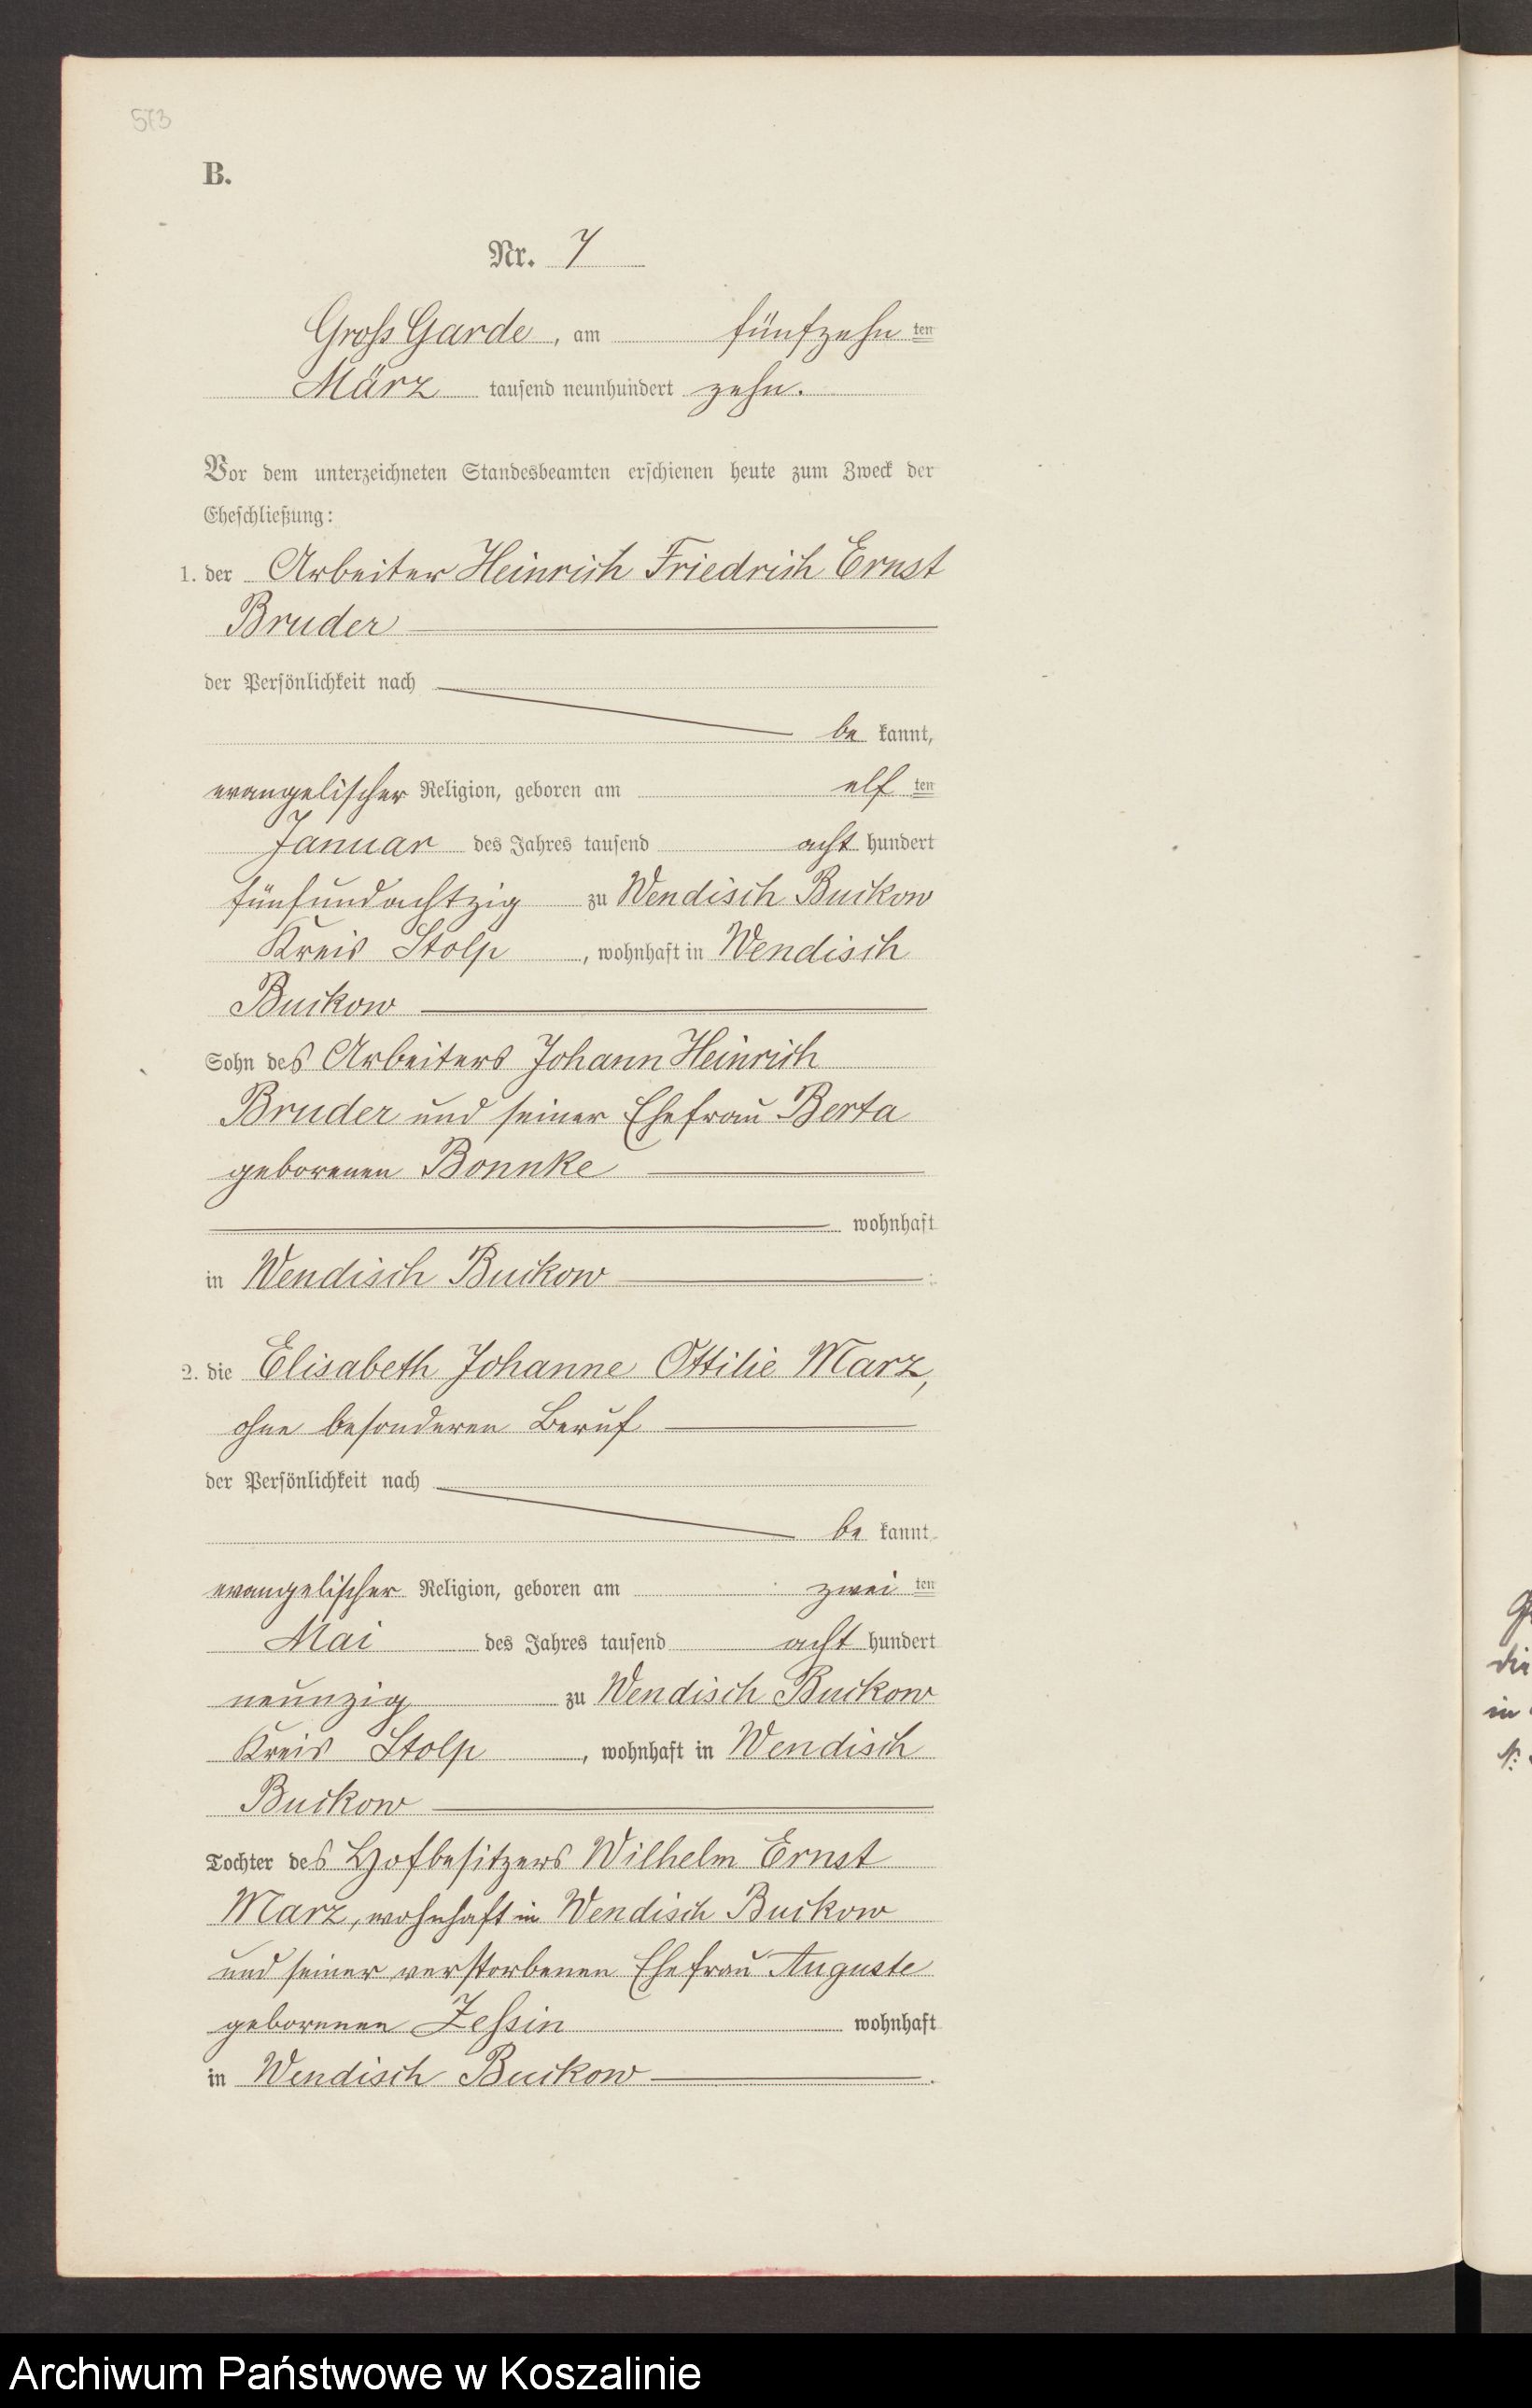 573
B.
Nr. 7
Gross Garde, am fünfzehn ten
März tausend neunhundert zehn.
Vor dem unterzeichneten Standesbeamten erschienen heute zum Zweck der
Eheschließung:
1. der Arbeiter Heinrich Friedrich Ernst
Bruder
der Persönlichkeit nach
be kannt,
evangelischer Religion, geboren am elf ten
Januar des Jahres tausend acht hundert
fünfundachtzig zu Wendisch Buckow
Kreis Stolp, wohnhaft in Wendisch
Buckow
Sohn des Arbeiters Johann Heinrich
Bruder und seiner Ehefrau Berta
geborenen Bonnke
wohnhaft
in Wendisch Buckow
2. die Elisabeth Johanne Ottilie Marz,
ohne besonderen Beruf
der Persönlichkeit nach
be kannt
evangelischer Religion, geboren am zwei ten
Mai des Jahres tausend acht hundert
neunzig zu Wendisch Buckow
Kreis Stolp, wohnhaft in Wendisch
Buckow
Tochter des Hofbesitzers Wilhelm Ernst
Marz, wohnhaft in Wendisch Buckow
und seiner verstorbenen Ehefrau Auguste
geborenen Zessin wohnhaft
in Wendisch Buckow.
die
in
Archiwum Państwowe w Koszalinie